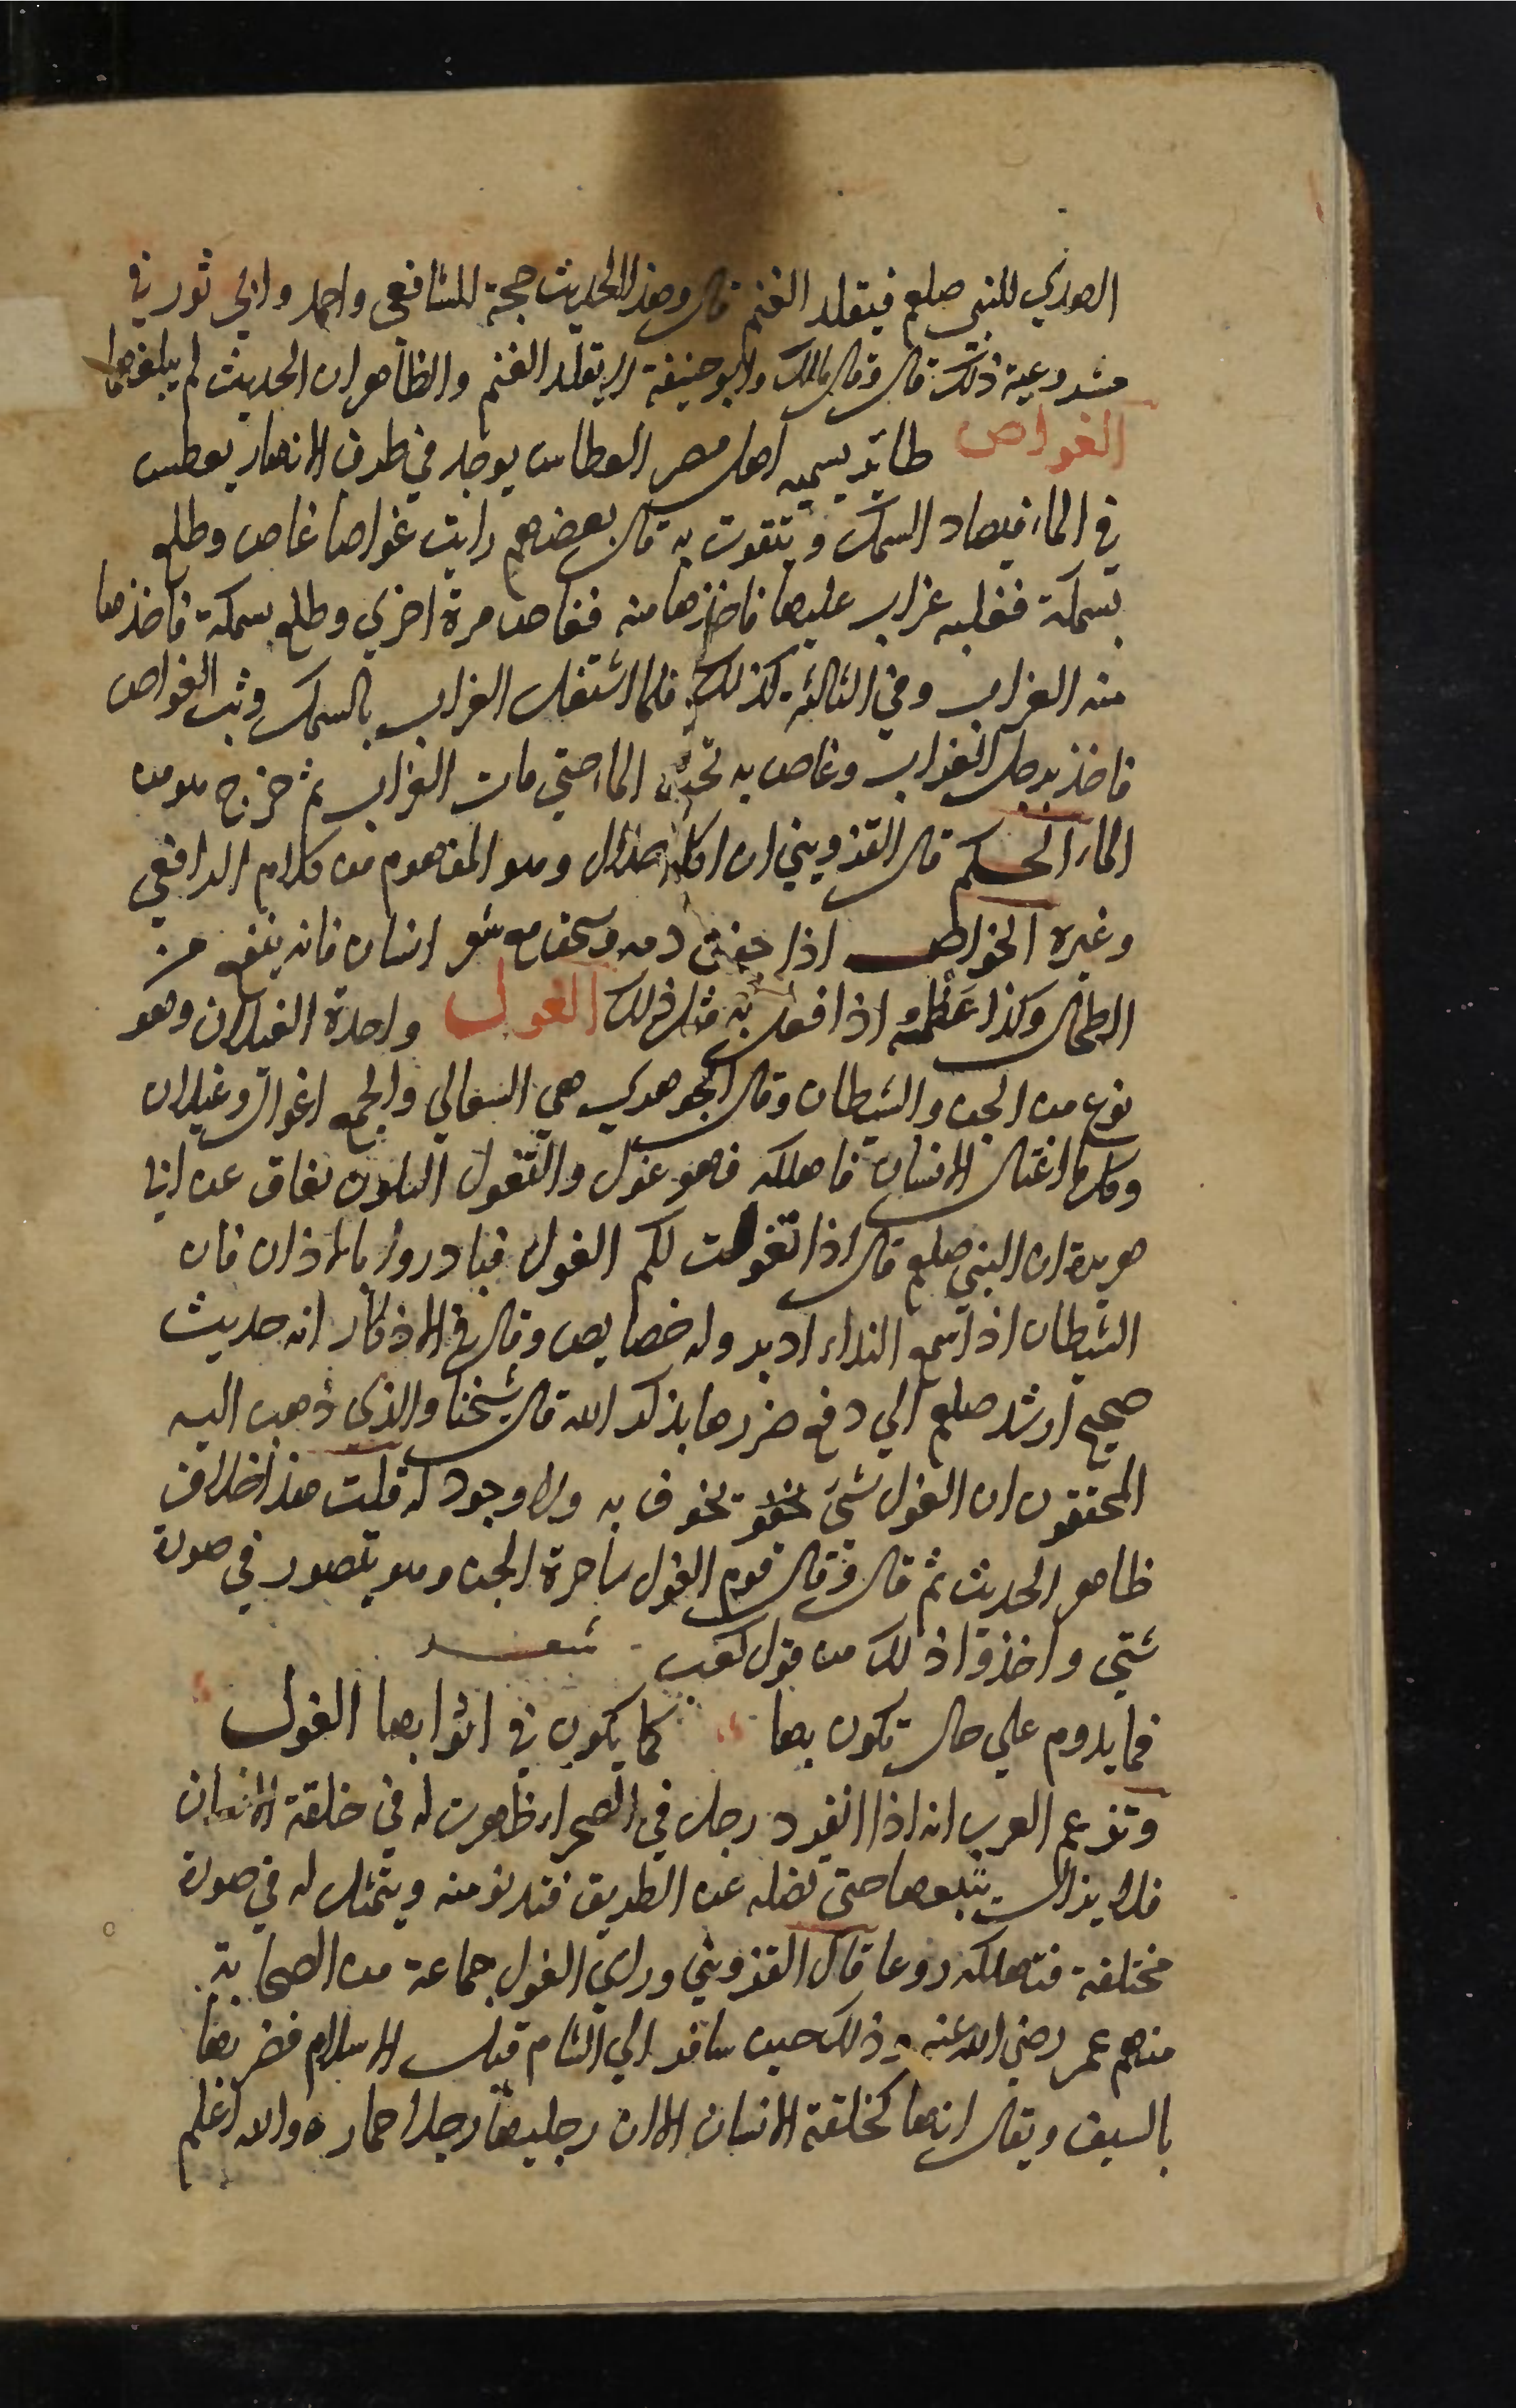 الهدي للنبي صلعم فيقلد الغنم قال وهذا الحديث حجة للشافعي واحمد وابي ثور في
مشروعية ذلك قال وقال مالك وابو حنيفة لا يقلد الغنم والظاهر ان الحديث لم يبلغهما
الغواص طائر يسميه اهل مصر الغطاس يوجد في طرف الانهار يغطس
في الماء فيصاد السمك ويتقوت به قال بعضهم رايت غواصا غاص وطلع
بسمكة فغلبه غراب عليها فاخذها منه فغاص مرة اخري وطلع بسمكة فاخذها
منه الغراب وفي الثالثة كذلك فلما اشتغل الغراب بالسمك وثب الغواص
فاخذ برجل الغراب وغاص به تحت الماء حتي مات الغراب ثم خرج هو من
الماء الحكم قال القزويني ان اكله حلال وهو المفهوم من كلام الرافعي
وغيره الخواص اذا جفف دمه وسحق مع شعر انسان فانه ينفع من
الطحال وكذا عظمه اذا فعل به مثل ذلك الغول واحدة الغيلان وهو
نوع من الجن والشيطان وقال الجوهري هي السعالي والجمع اغوال وغيلان
وكلما اغتال الانسان فاهلكه فهو غول والتغول التلون نقاق عن ابا
هريرة ان النبي صلعم قال اذا تغولت لكم الغول فبادروا بالاذان فان
الشيطان اذا سمع النداء ادبر وله خصايص وقال في الاذكار انه حديث
صحيح ارشد صلعم الي دفع ضررها بذكر الله قال شيخنا والذي ذهب اليه
المحققون ان الغول شئ يخوف به ولا وجود له قلت هذا خلاف
ظاهر الحديث ثم قال وقال قوم الغول ساحرة الجن وهو يتصور في صورة
شتي واخذوا ذلك من قول كعب شعر
فما يدوم علي حال تكون بها كما يكون في اثوابها الغول
وتزعم العرب انه اذا انفرد رجل في الصحراء ظهرت له في خلقة الانسان
فلا يزال يتبعها حتى تضله عن الطريق فتدنو منه ويتمثل له في صورة
مختلفة فتهلكه روعا قال القزويني وراي الغول جماعة من الصحابة
منهم عمر رضي الله عنه وذلك حين سافر الي الشام قبل الاسلام فضربها
بالسيف ويقال انها كخلقة الانسان الا ان رجليها رجلا حمار ه والله اعلم